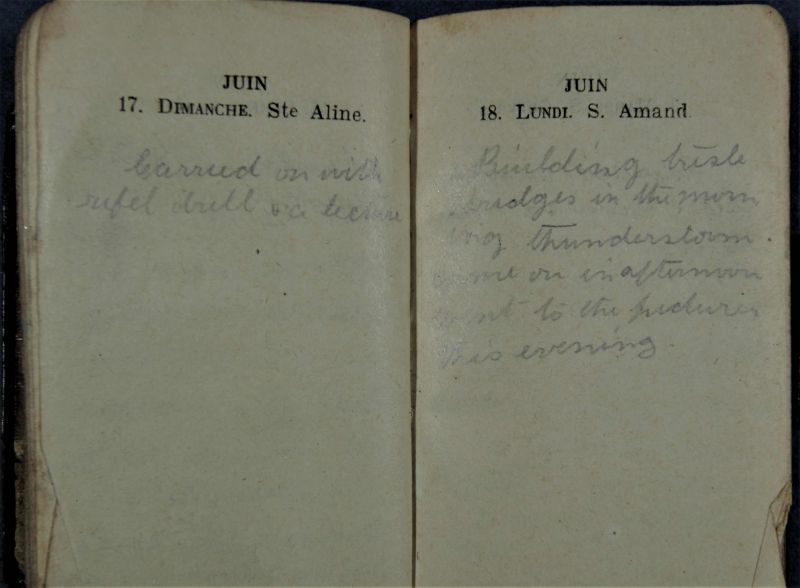 JUIN
17. DIMANCHE. Ste Aline.
Carried on with
rifel drill & a lecture
JUIN
18. LUNDI. S. Amand.
Building tresle
bridges in the morn
ing thunderstorm.
came on in afternoon
went to the pictures
this evening.